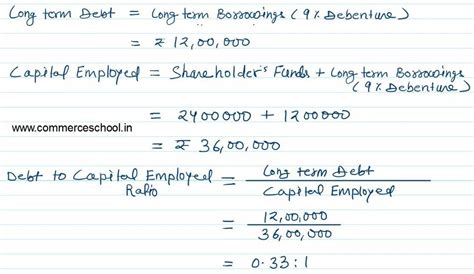 Long term Debt = Long term Borrowings (9% Debenture)
= ₹ 12,00,000
Capital Employed = Shareholder's Funds + Long term Borrowings
(9% Debenture)
= 2400000 + 1200000
www.commerceschool.in
= ₹ 36,00,000
Debt to Capital Employed Ratio = Long term Debt / Capital Employed
= 12,00,000 / 36,00,000
= 0.33 : 1